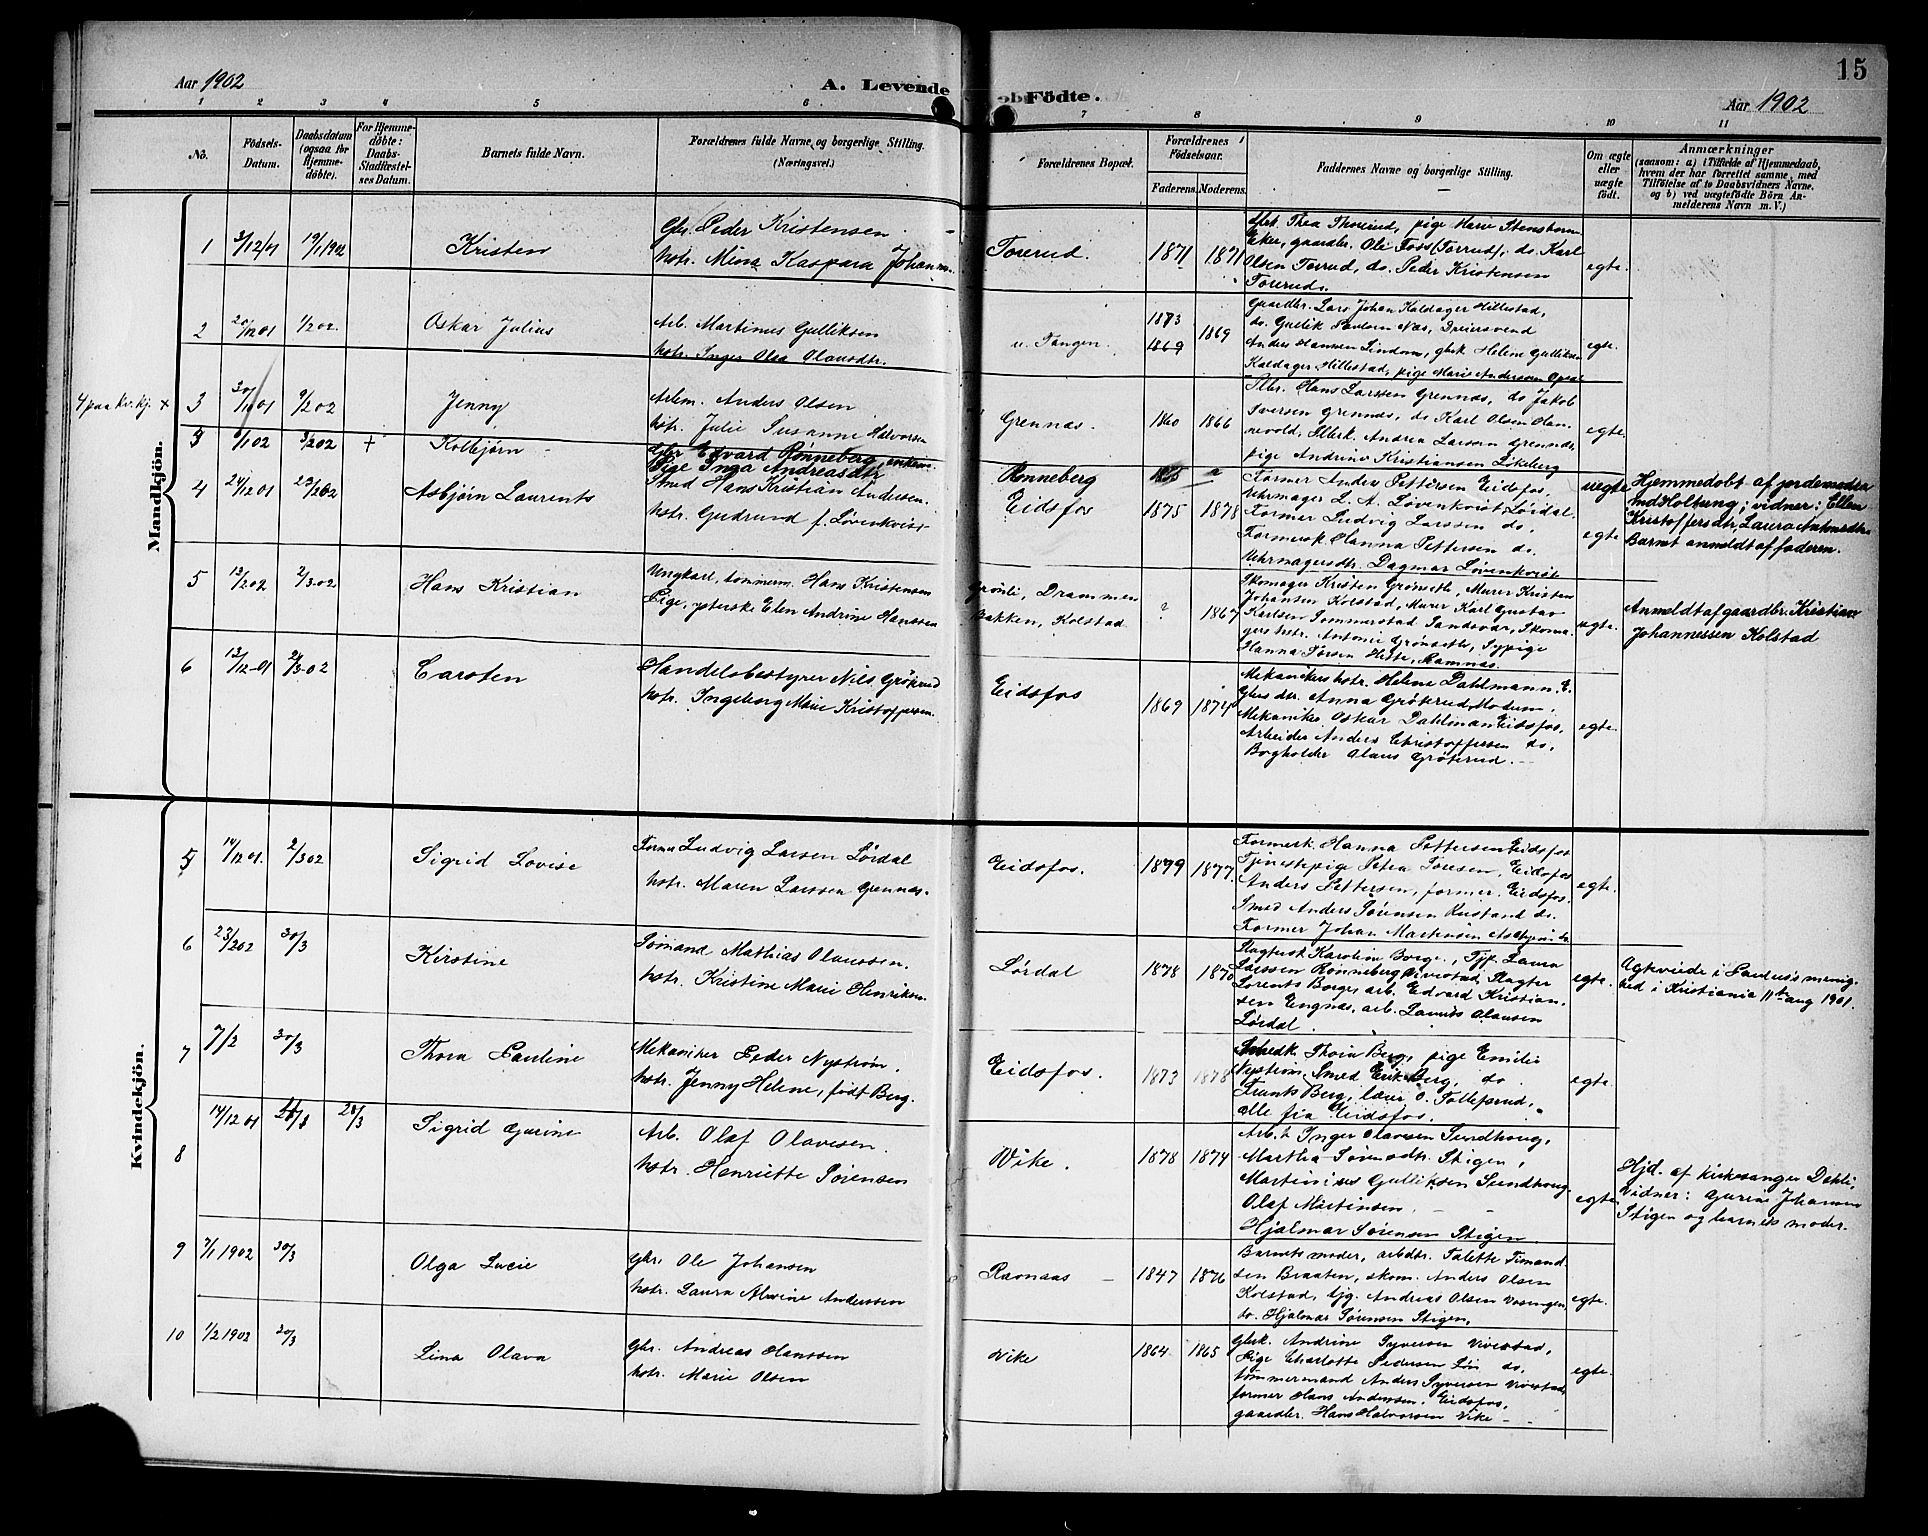 15
Aar 1902
A. Levende Födte.
Aar 1902
1 2 3 4 5 6 7 8 9 10 11
No.
Födsels-Datum.
Daabsdatum (ogsaa for Hjemmedöbte).
For Hjemmedöbte: Daabs-Stadfæstelses Datum.
Barnets fulde Navn.
Forældrenes fulde Navne og borgerlige Stilling.
(Næringsvei.)
Forældrenes Bopæl.
Forældrenes Födselsaar.
Faderens. Moderens.
Faddernes Navne og borgerlige Stilling.
Om ægte eller uægte födt.
Anmærkninger
(saasom: a) i Tilfælde af Hjemmedaab,
hvem der har forrettet samme, med
Tilföielse af to Daabsvidners Navne,
og b) ved uægtefödte Börn An-
melderens Navn m. V.)
Mandkjön.
1 3/12/01 19/1 902 Kristen
Gbr. Peder Kristensen
hstr. Mina Kaspara Johannes
Torerud. 1871 1871
Gbrk. Thea Thorerud, pige
Eker, gaardbr. Ole Foss (Torrud), do. Karl
Olsen Torrud, do. Peder Kristensen
Torerud.
egte.
2 20/12 01 1/2 02. Oskar Julius
Arb. Martinus Gulliksen
hstr. Inger Olea Olausdtr.
u. Tangen. 1873 1869 1869
Gaardbr. Lars Johan Kaldager Hillestad,
do. Gullik Paulsen Næs, Dreiersvend
Anders Hansen Lindom, gbrk. Helene Gulliksen
Kaldager Hillestad, pige Marie Andersen Opsal
egte.
4 paa kv. kj. +
3 30/10 01 9/2 02 Jenny
Arbm. Anders Olsen
hstr. Julie Susanne Halvorsen
Grennæs. 1860 1866
Gbr. Hans Larssen Grennæs, do Jakob
Iversen Grennæs, do Karl Olsen Han-
nevold, Gbrk. Andrea Larsen Grennæs,
pige Andrine Kristiansen Løkeberg
egte.
3 6/1 02 3/2 02 + Kolbjørn
Gbr Edvard Rønneberg, enkem.
Pige Inga Andreasdtr
Rønneberg
uegte
Hjemmedøbt af jordemoder
Ind Holtung; vidner: Ellen
Kristoffersdtr, Laura Antonsdtr.
Barnet anmeldt af faderen.
4 24/12 01 23/2 02 Asbjørn Laurents
Smed Hans Kristian Andersen.
hstr. Gudrund f. Løvenkvist
Eidsfos 1875 1878
Former Anders Pettersen Eidsfos,
Uhrmager L. A. Løvenkvist Lørdal.
Former Ludvig Larssen do.
Formersk. Hanna Pettersen do.
Uhrmagersdtr. Dagmar Løvenkvist
egte
5 12/2 02 2/3 02 Hans Kristian
Ungkarl, tømmerm. Hans Kristensen
Pige, ysterske Elen Andrine Hanssen
Grønli, Drammen
Bakken, Kolstad ? 1867
Skomager Kristen Grønseth, Murer Kristen
Johansen Kolstad, Murer Karl Gustav
Karlsen Sommerstad Sandsvær, Skoma-
gers hstr. Antonie Grønseth, Sypige
Hanna Sørsen Heste, Ramnæs.
uegte.
Anmeldt af gaardbr. Kristian
Johannessen Kolstad
6 12/12-01 2/3 02 Carsten
Handelsbestyrer Nils Grøterud
hstr. Ingeborg Marie Kristoffersen.
Eidsfos 1869 1874
Mekanikers hstr. Helene Dahlmann, E.
Gbrs dtr. Anna Grøterud, Modum.
Mekaniker Oskar Dahlman Eidsfos,
Arbeider Anders Christoffersen do,
Bogholder Olaus Grøterud.
egte.
Kvindekjön.
5 14/12 01. 2/3 02 Sigrid Lovise
Former Ludvig Larsen Lørdal
hstr. Maren Larssen Grennæs.
Eidsfos. 1879 1877.
Formerk. Hanna Pettersen Eidsfos
Tjenestepige Petra Toresen, Eidsfos
Anders Pettersen, former, Eidsfos.
Smed Anders Sørensen Rustand do.
Former Johan
egte.
6 23/2 02 30/3 Kirstine
Sømand Mathias Olaussen.
hstr. Kristine Marie Henriksen
Lørdal 1878 1870
Slagtersk. Karoline Borge, Tjp. Laura
Larssen Rønneberg Vivestad, Slagter
Lorents Borge, arb. Edvard Kristian-
sen Engnæs, arb. Olausen
Lørdal
egte.
Ægteviede i Paulus's menig-
hed i Kristiania 11te aug 1901.
7 7/2 30/3 Thora Pauline
Mekaniker Peder Nystrøm.
hstr. Jenny Helene, født Berg.
Eidsfos. 1873 1878
Smedk. Thora Berg, pige Emilie
Nystrøm, Smed Erik Berg, do.
Frants Berg, lærer O. Tollefsrud,
alle fra Eidsfos.
egte.
8 14/12 01 28/3 Sigrid Gurine
Arb. Olaf Olavesen.
hstr. Henriette Sørensen
Vike. 1878 1874
Arb.k Inger Olavsen Sundhaug,
Martha Sørensdtr. Stigen,
Martinius Gulliksen Sundhaug
Olaf Mortensen.
Hjalmar Sørensen Stigen.
egte
Hjd. af kirkesanger Dehli,
Vidner: Gurine Johansen
Stigen og barnets moder.
9 7/1 1902 30/3 Olga Lucie
Gbr. Ole Johansen
hstr. Laura Alvine Anderssen
Ravnaas 1847 1876
Barnets moder, arbdtr. Talette Timand-
sen Braaten, skom. Anders Olsen
Kolstad, Andreas Olsen
do. Hjalmar Sørensen Stigen.
egte.
10 1/2 1902 30/3 Lina Olava
Gbr. Andreas Hanssen
hstr. Marie Olsen
Vike 1864. 1865
Gbrk. Andrine Syversen Vivestad,
Pige Charlotte Pedersen do.
tømmermand Anders Syversen Vivestad,
former Hans Anderssen. Eidsfos,
gaardbr. Hans Halvorsen Vike
egte.